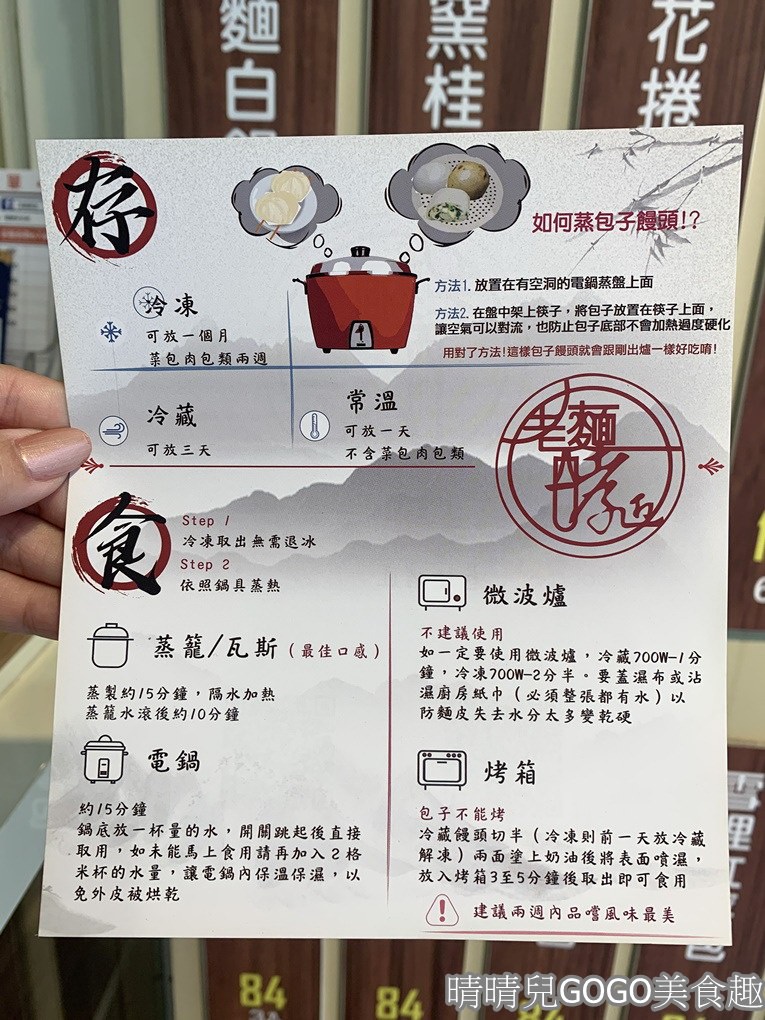 麵白饅
窯桂
花捲
存
如何蒸包子饅頭!?
方法1. 放置在有空洞的電鍋蒸盤上面
方法2. 在盤中架上筷子，將包子放置在筷子上面，
讓空氣可以對流，也防止包子底部不會加熱過度硬化
用對了方法!這樣包子饅頭就會跟剛出爐一樣好吃唷!
冷凍
可放一個月
菜包肉包類兩週
冷藏
可放三天
常溫
可放一天
不含菜包肉包類
老麵
食
Step 1
冷凍取出無需退冰
Step 2
依照鍋具蒸熱
蒸籠/瓦斯（最佳口感）
蒸製約15分鐘，隔水加熱
蒸籠水滾後約10分鐘
電鍋
約15分鐘
鍋底放一杯量的水，開關跳起後直接
取用，如未能馬上食用請再加入2格
米杯的水量，讓電鍋內保溫保濕，以
免外皮被烘乾
微波爐
不建議使用
如一定要使用微波爐，冷藏700W-1分
鐘，冷凍700W-2分半。要蓋濕布或沾
濕廚房紙巾（必須整張都有水）以
防麵皮失去水分太多變乾硬
烤箱
包子不能烤
冷藏饅頭切半（冷凍則前一天放冷藏
解凍）兩面塗上奶油後將表面噴濕，
放入烤箱3至5分鐘後取出即可食用
建議兩週內品嚐風味最美
雪裡紅
84
84
晴晴兒GOGO美食趣